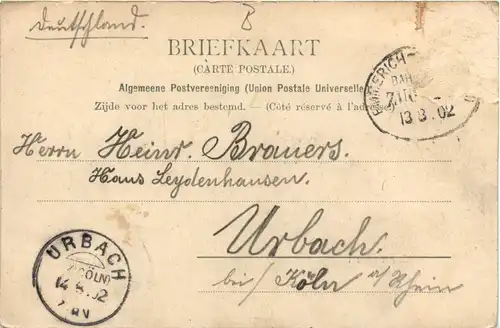 Deutschland.
8
BRIEFKAART
(CARTE POSTALE.)
Algemeene Postvereeniging (Union Postale Universelle
Zijde voor het adres bestemd. — (Côté réservé à l'adres
EMMERICH-
BAH
ZUG
13 3.02
Herrn Heinr. Brauers.
Haus Leydenhausen.
Urbach.
bei Köln a/Rhein
URBACH
(CÖLN)
14 3.02